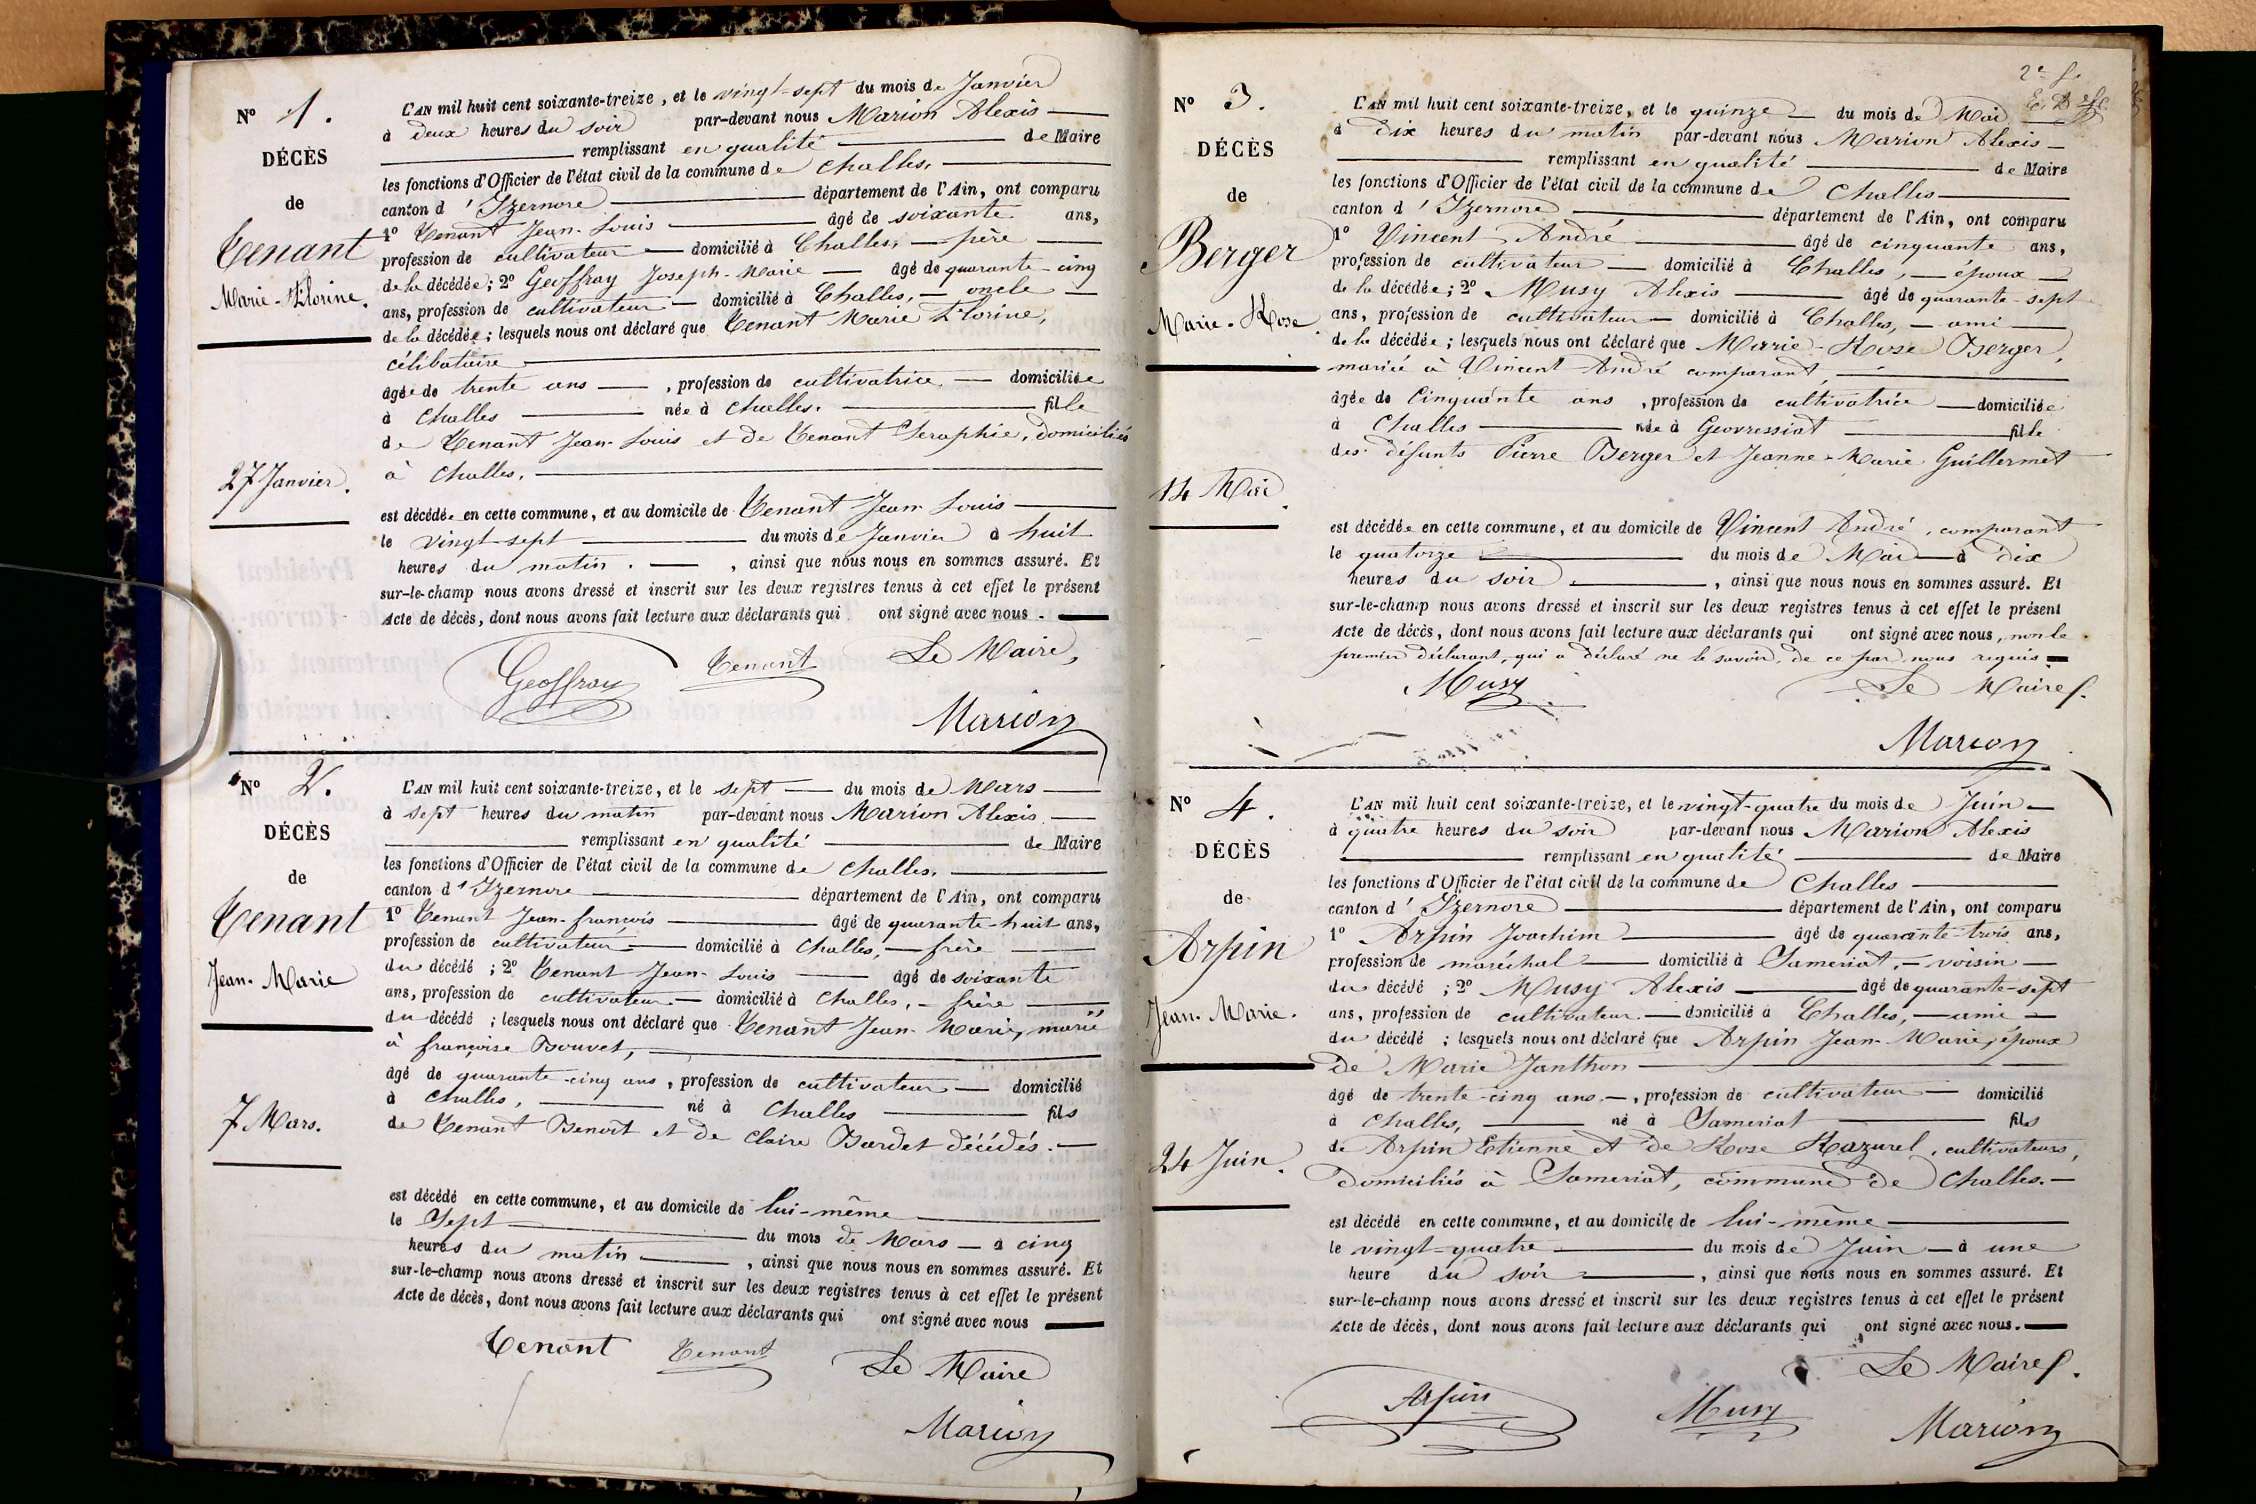 Nº 1.
DÉCÈS
de
Tenant
Marie-Florine.
27 Janvier.
L'AN mil huit cent soixante-treize, et le vingt-sept du mois de Janvier
à deux heures du soir par-devant nous Marion Alexis
remplissant en qualité de Maire
les fonctions d'Officier de l'état civil de la commune de Challes,
canton d'Izernore département de l'Ain, ont comparu
1º Tenant Jean-Louis âgé de soixante ans,
profession de cultivateur domicilié à Challes, père
de la décédée; 2º Geoffray Joseph-Marie âgé de quarante-cinq
ans, profession de cultivateur domicilié à Challes, oncle
de la décédée; lesquels nous ont déclaré que Tenant Marie Florine,
célibataire
âgée de trente ans, profession de cultivatrice domiciliée
à Challes née à Challes. fille
de Tenant Jean-Louis et de Tenant Seraphie, domiciliés
à Challes.
est décédée en cette commune, et au domicile de Tenant Jean Louis
le vingt-sept du mois de Janvier à huit
heures du matin. , ainsi que nous nous en sommes assuré. Et
sur-le-champ nous avons dressé et inscrit sur les deux registres tenus à cet effet le présent
Acte de décès, dont nous avons fait lecture aux déclarants qui ont signé avec nous.
Geoffray Tenant Le Maire,
Marion
Nº 2.
DÉCÈS
de
Tenant
Jean-Marie
7 Mars.
L'AN mil huit cent soixante-treize, et le sept du mois de Mars
à sept heures du matin par-devant nous Marion Alexis
remplissant en qualité de Maire
les fonctions d'Officier de l'état civil de la commune de Challes,
canton d'Izernore département de l'Ain, ont comparu
1º Tenant Jean-françois âgé de quarante-huit ans,
profession de cultivateur domicilié à Challes, frère
du décédé; 2º Tenant Jean-Louis âgé de soixante
ans, profession de cultivateur domicilié à Challes, frère
du décédé; lesquels nous ont déclaré que Tenant Jean-Marie, marié
à françoise Bouvet,
âgé de quarante-cinq ans, profession de cultivateur domicilié
à Challes, né à Challes fils
de Tenant Benoît et de Claire Bardet décédés.
est décédé en cette commune, et au domicile de lui-même
le Sept du mois de Mars à cinq
heures du matin, ainsi que nous nous en sommes assuré. Et
sur-le-champ nous avons dressé et inscrit sur les deux registres tenus à cet effet le présent
Acte de décès, dont nous avons fait lecture aux déclarants qui ont signé avec nous
Tenant Tenant Le Maire
Marion
2e f.
Nº 3.
DÉCÈS
de
Berger
Marie-Rose
14 Mai.
L'AN mil huit cent soixante-treize, et le quinze du mois de Mai
à Dix heures du matin par-devant nous Marion Alexis
remplissant en qualité de Maire
les fonctions d'Officier de l'état civil de la commune de Challes
canton d'Izernore département de l'Ain, ont comparu
1º Vincent André âgé de cinquante ans,
profession de cultivateur domicilié à Challes, époux
de la décédée; 2º Musy Alexis âgé de quarante-sept
ans, profession de cultivateur domicilié à Challes, ami
de la décédée; lesquels nous ont déclaré que Marie-Rose Berger,
mariée à Vincent André comparant,
âgée de Cinquante ans, profession de cultivatrice domiciliée
à Challes née à Geovressiat fille
des défunts Pierre Berger et Jeanne-Marie Guillermet
est décédée en cette commune, et au domicile de Vincent André, comparant
le quatorze du mois de Mai à dix
heures du soir, ainsi que nous nous en sommes assuré. Et
sur-le-champ nous avons dressé et inscrit sur les deux registres tenus à cet effet le présent
Acte de décès, dont nous avons fait lecture aux déclarants qui ont signé avec nous, non le
premier déclarant, qui a déclaré ne le savoir, de ce par nous requis
Musy Le Maire.
Marion
Nº 4.
DÉCÈS
de
Arpin
Jean-Marie.
24 Juin.
L'AN mil huit cent soixante-treize, et le vingt-quatre du mois de Juin
à quatre heures du soir par-devant nous Marion Alexis
remplissant en qualité de Maire
les fonctions d'Officier de l'état civil de la commune de Challes
canton d'Izernore département de l'Ain, ont comparu
1º Arpin Joachim âgé de quarante-trois ans,
profession de maréchal domicilié à Sameriat, voisin
du décédé; 2º Musy Alexis âgé de quarante-sept
ans, profession de cultivateur domicilié à Challes, ami
du décédé; lesquels nous ont déclaré que Arpin Jean-Marie, époux
de Marie Janthon
âgé de trente-cinq ans, profession de cultivateur domicilié
à Challes, né à Sameriat fils
de Arpin Etienne et de Rose Razurel, cultivateurs,
domiciliés à Sameriat, commune de Challes.
est décédé en cette commune, et au domicile de lui-même
le vingt-quatre du mois de Juin à une
heure du soir, ainsi que nous nous en sommes assuré. Et
sur-le-champ nous avons dressé et inscrit sur les deux registres tenus à cet effet le présent
Acte de décès, dont nous avons fait lecture aux déclarants qui ont signé avec nous.
Le Maire.
Arpin Musy Marion